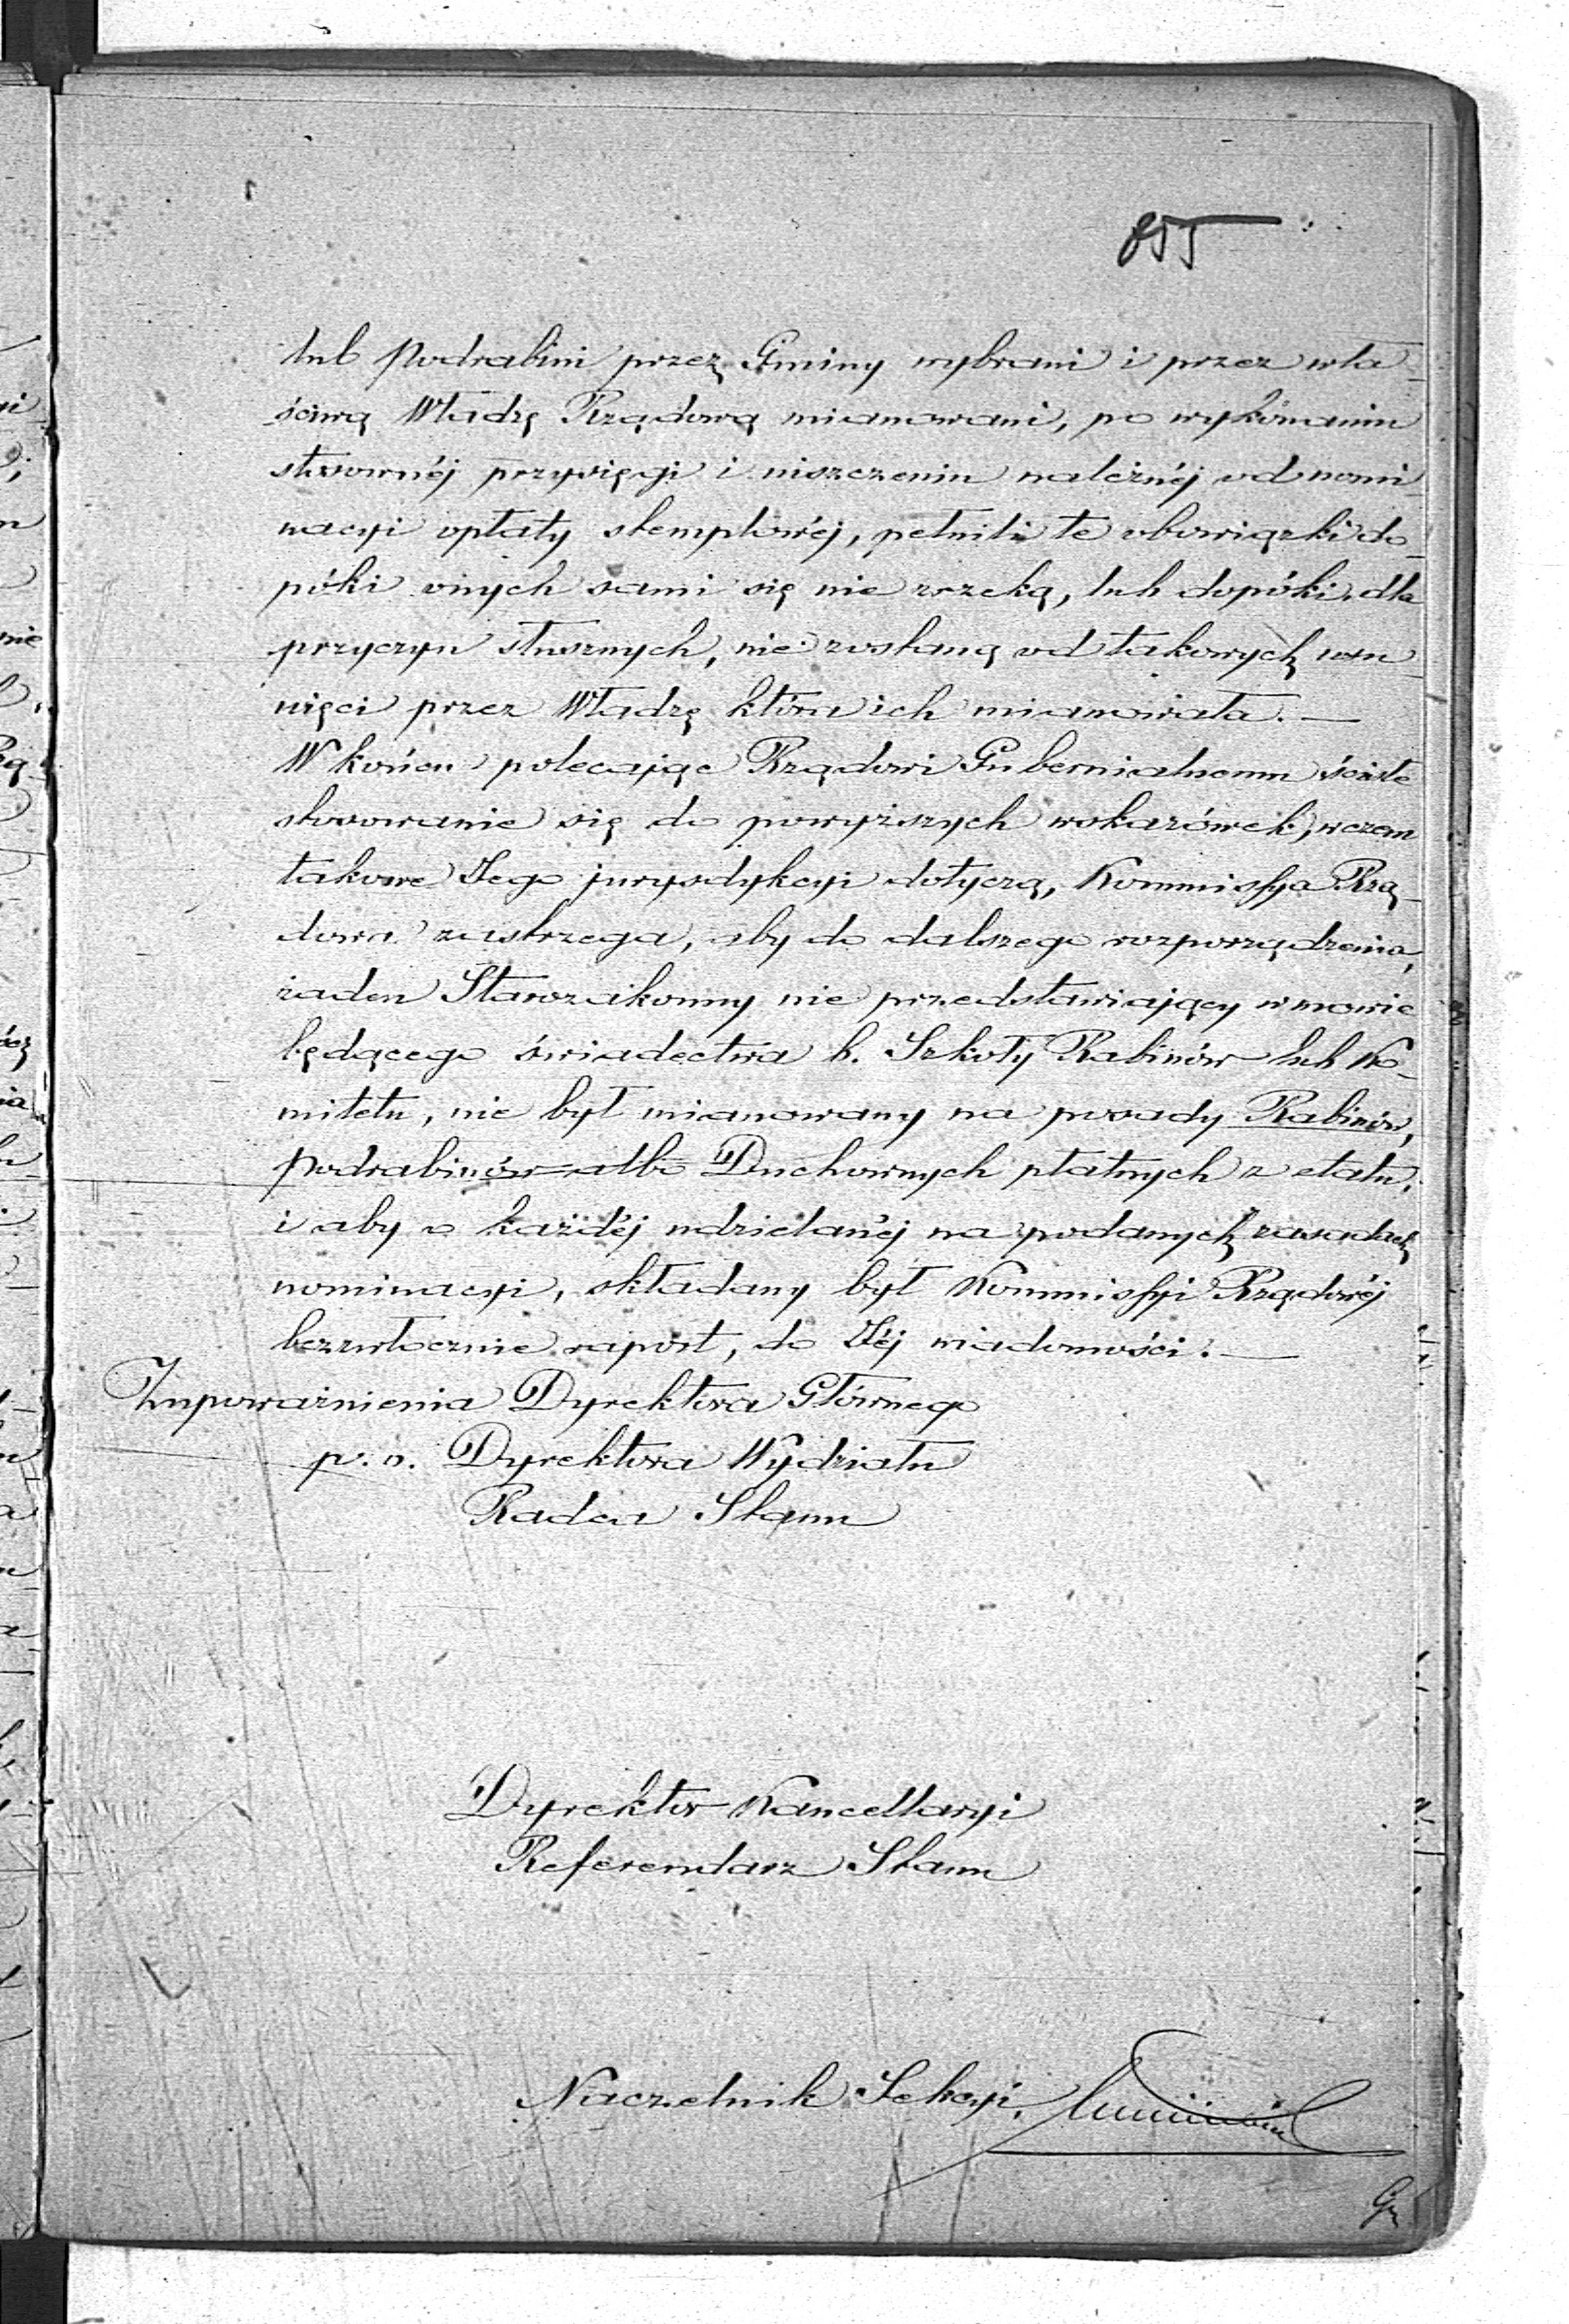 855
lub Podrabini przez Gminy wybrani i przez wła-
ściwą Władzę Rządową mianowani, po wykonaniu
stosownéj przysięgi i uiszczeniu należnéj od nomi-
nacyi opłaty stemplowéj, pełnili te obowiązki do-
póki onych sami się nie zrzeką, lub dopóki dla
przyczyn słusznych, nie zostaną od takowych usu-
nięci przez Władzę która ich mianowała. —
W końcu polecając Rządowi Gubernialnemu ścisłe
stosowanie się do powyższych wskazówek, w czem
takowe Jego jurysdykcyi dotyczą, Kommissya Rzą-
dowa zastrzega, aby do dalszego rozporządzenia,
żaden Starozakonny nie przedstawiający w mowie
będącego świadectwa b. Szkoły Rabinów lub Ko-
mitetu, nie był mianowany na posady Rabinów,
Podrabinów albo Duchownych płatnych z etatu,
i aby o każdéj udzielanéj na podanych zasadach
nominacyi, składany był Kommissyi Rządowéj
bezzwłocznie raport, do Jéj wiadomości. —
Z upoważnienia Dyrektora Głównego
p. o. Dyrektora Wydziału
Radca Stanu
Dyrektor Kancellaryi
Referendarz Stanu
Naczelnik Sekcyi,